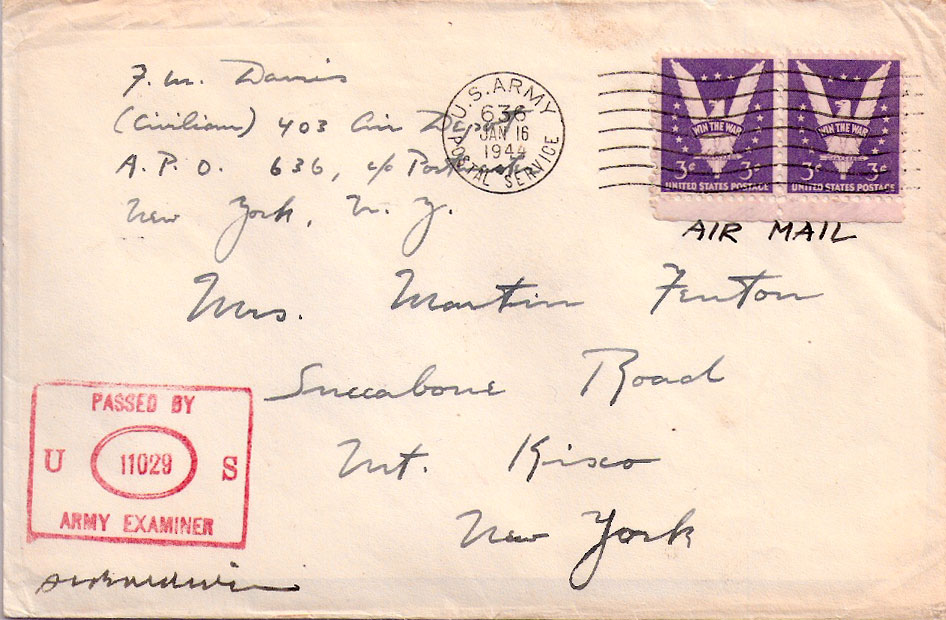 F. M. Davis
(Civilian) 403 Air Depot
A. P. O. 636, c/o Postmaster
New York, N. Y.
U.S. ARMY
636
JAN 16
1944
POSTAL SERVICE
WIN THE WAR
WIN THE WAR
3¢ 3¢ 3¢ 3¢
UNITED STATES POSTAGE UNITED STATES POSTAGE
AIR MAIL
Mrs. Martin Fenton
Succabone Road
Mt. Kisco
New York
PASSED BY
U 11029 S
ARMY EXAMINER